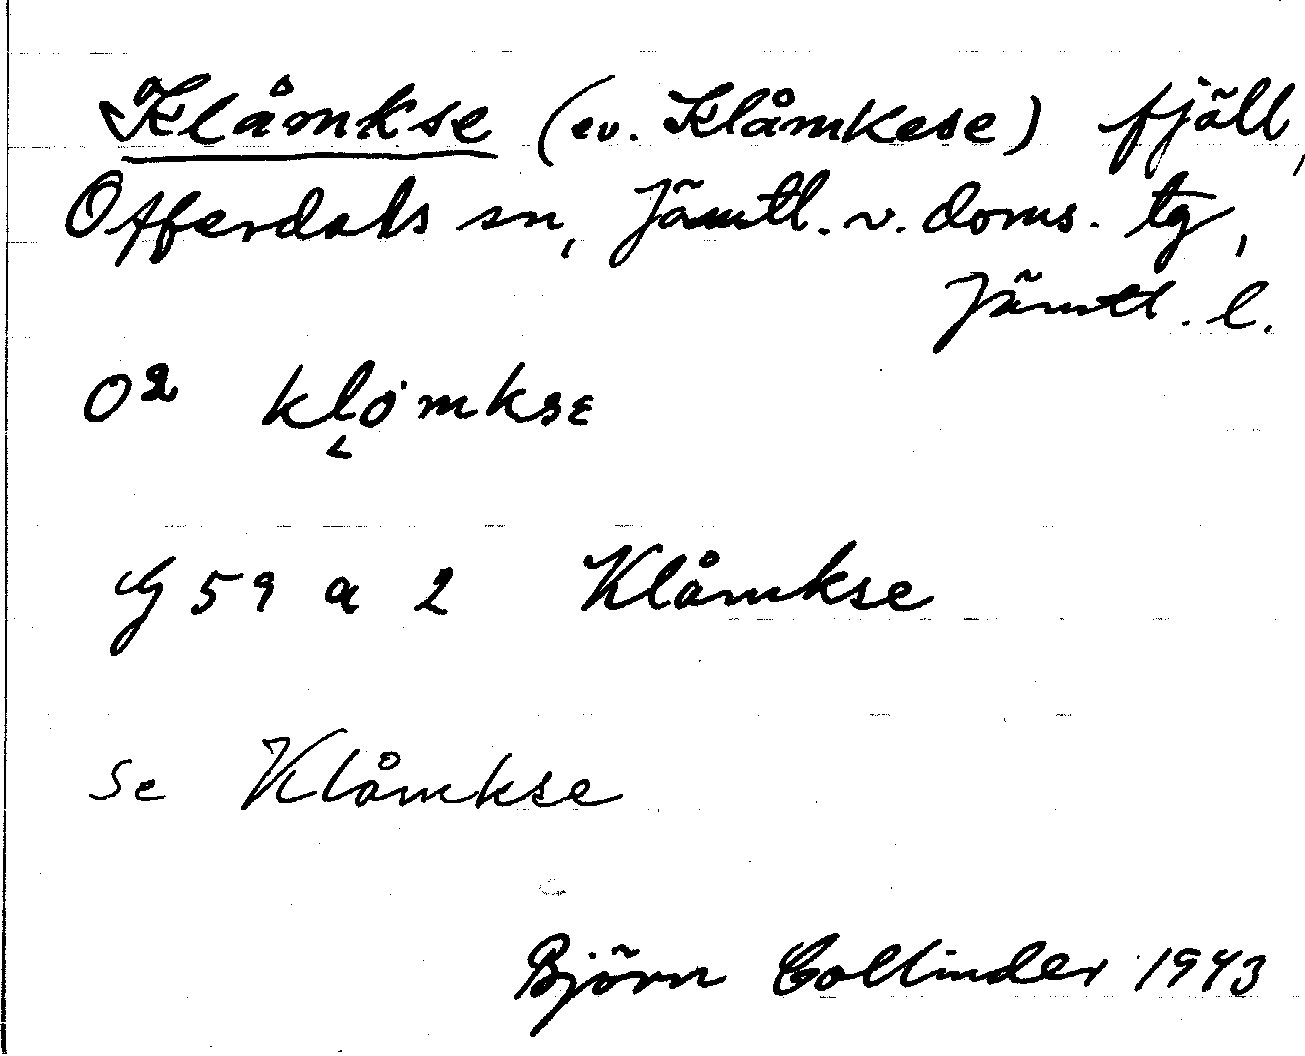 Klåmkse (ev. Klåmkese) fjäll,
Offerdals sn, Jämtl. v. doms. tg,
Jämtl. l.
O² klo̩mksɛ
G 59 a 2 Klåmkse
se Klåmkse
Björn Collinder 1943